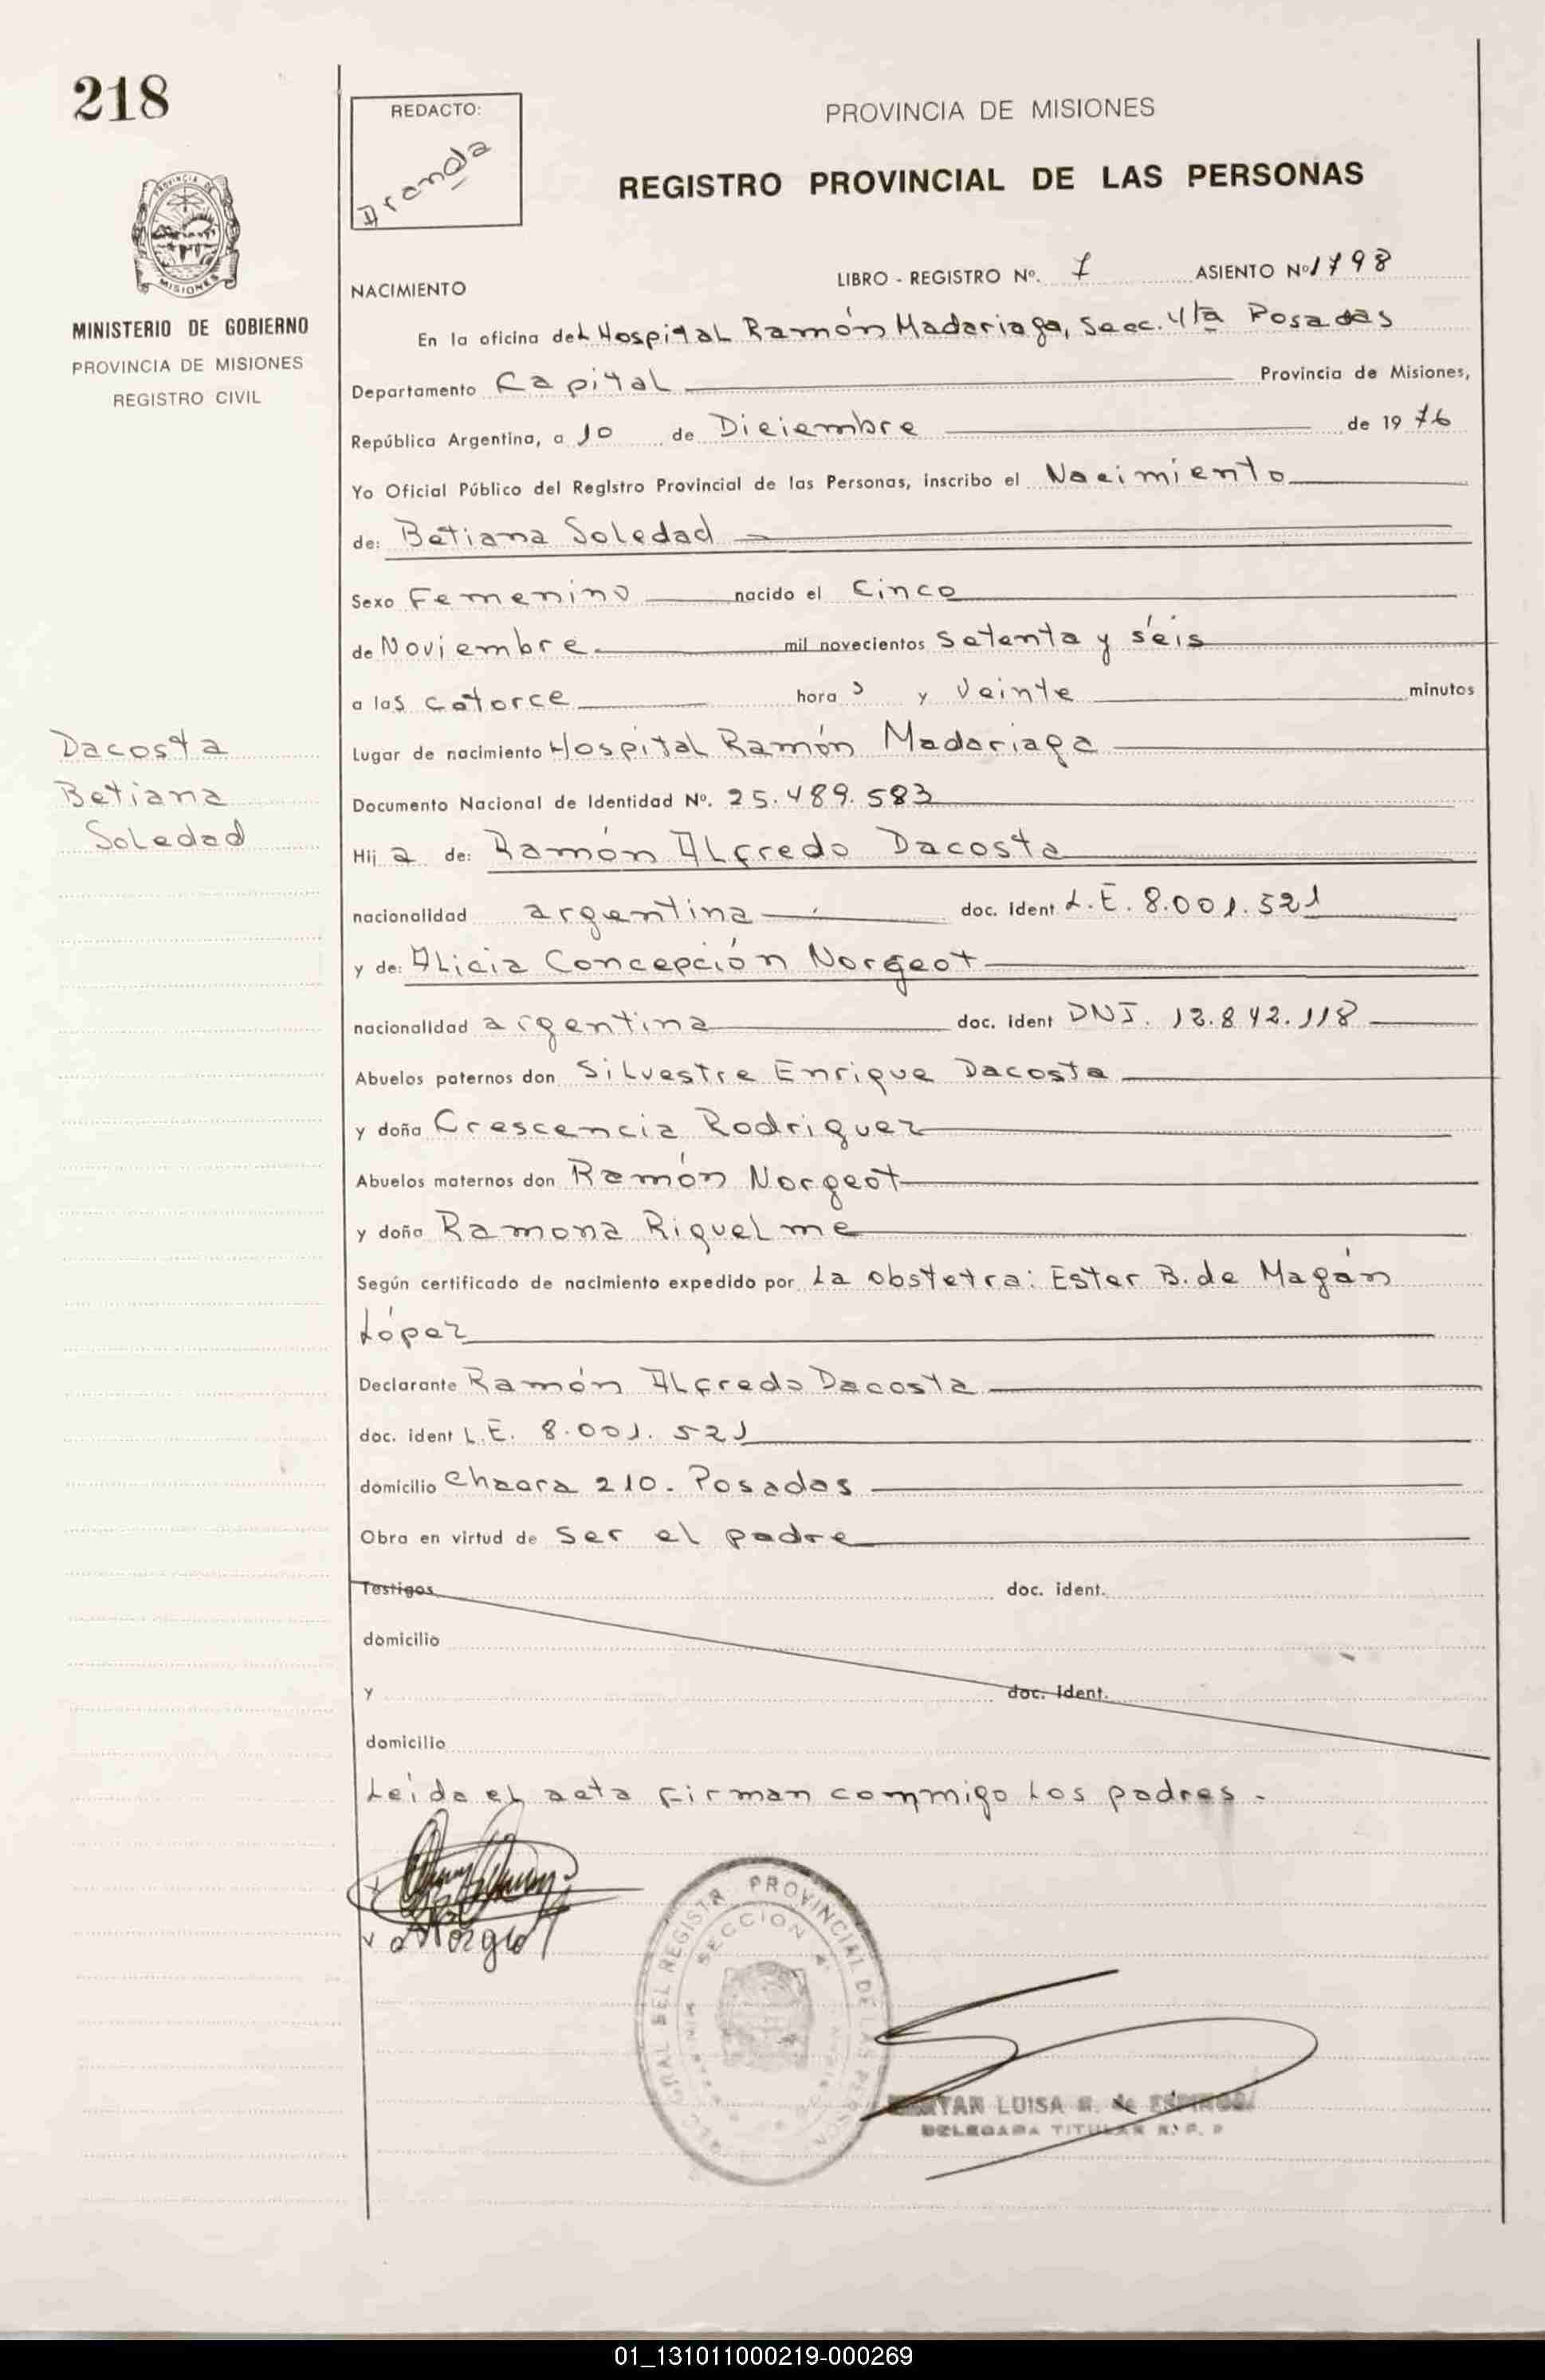 218
REDACTO:
Aranda
PROVINCIA DE MISIONES
REGISTRO PROVINCIAL DE LAS PERSONAS
PROVINCIA DE
MISIONES
MINISTERIO DE GOBIERNO
PROVINCIA DE MISIONES
REGISTRO CIVIL
NACIMIENTO LIBRO - REGISTRO Nº. 7 ASIENTO Nº 1798
En la oficina del Hospital Ramón Madariaga, Secc. 4ta Posadas
Departamento Capital Provincia de Misiones,
República Argentina, a 10 de Diciembre de 1976
Yo Oficial Público del Registro Provincial de las Personas, inscribo el Nacimiento
de: Betiana Soledad
Sexo Femenino nacido el Cinco
de Noviembre mil novecientos setenta y séis
a las catorce horas y veinte minutos
Lugar de nacimiento Hospital Ramón Madariaga
Dacosta
Betiana
Soledad
Documento Nacional de Identidad Nº. 25.489.583
Hija de: Ramón Alfredo Dacosta
nacionalidad argentina doc. ident L.E. 8.001.521
y de: Alicia Concepción Norgeot
nacionalidad argentina doc. ident DNI. 12.842.118
Abuelos paternos don Silvestre Enrique Dacosta
y doña Crescencia Rodriguez
Abuelos maternos don Ramón Norgeot
y doña Ramona Riquelme
Según certificado de nacimiento expedido por La obstetra: Ester B. de Magán
López
Declarante Ramón Alfredo Dacosta
doc. ident L.E. 8.001.521
domicilio Chacra 210. Posadas
Obra en virtud de ser el padre
Testigos doc. ident.
domicilio
y doc. ident.
domicilio
Leida el acta firman commigo los padres.
GRAL DEL REGISTR. PROVINCIAL DE LAS PERSON
SECCION 4ª
LUISA R. de ESPINOSA
DELEGADA TITULAR R. P. P
01_131011000219-000269